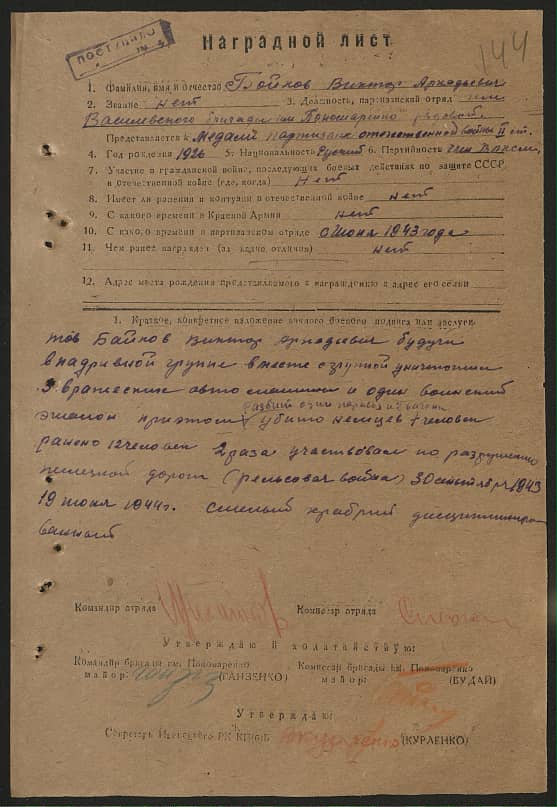 ПОСТУПИЛО
144
Наградной лист
1. Фамилия, имя и отчество Бойков Виктор Аркадьевич
2. Звание нет 3. Должность, партизанский отряд им.
бригады им Пономаренко рядовой
Представляется к Медали партизан отечественной войны II ст.
4. Год рождения 1926 5. Национальность Русский 6. Партийность член ВЛКСМ
7. Участие в гражданской войне, последующих боевых действиях по защите СССР
и Отечественной войне (где, когда) Нет
8. Имеет ли ранения и контузии в отечественной войне нет
9. С какого времени в Красной Армии нет
10. С какого времени в партизанском отряде с июня 1943 года
11. Чем ранее награжден (за какие отличия) нет
12. Адрес места рождения представляемого к награждению и адрес его семьи
1. Краткое, конкретное изложение личного боевого подвига или заслуг
тов Байков Виктор Аркадьевич будучи
в подривной группе вместе с групой уничтожил
3 вражеские авто машины и один воинский
эшалон приэтом разбит один паровоз и вагона убито немцев 7 человек
ранено 12 человек 2 раза участвовал по разрушению
железной дороги (рельсовая война) 30 сентября 1943
19 июня 1944 г. смелый храбрий дисциплиниро
ванный
Командир отряда Комисар отряда
Утверждаю и ходатайствую:
Командир бригады им. Пономаренко Комиссар бригады им. Пономаренко
майор: (ГАНЗЕНКО) майор: (БУДАЙ)
Утверждаю:
Секретарь Ивенецкого РК КП(б)Б Курленко (КУРЛЕНКО)